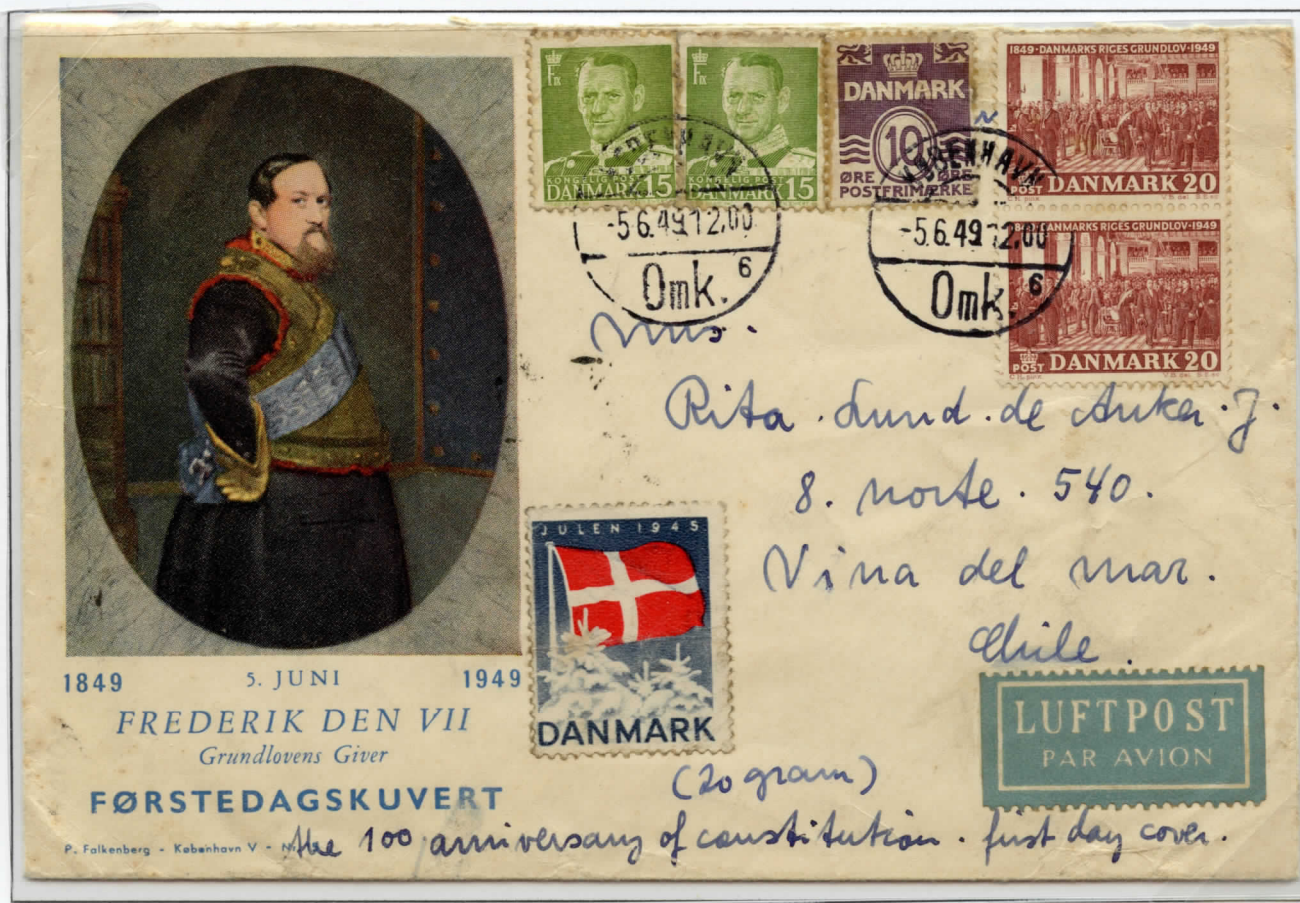 KONGELIG POST
DANMARK 15
KONGELIG POST
DANMARK 15
DANMARK
10
ØRE ØRE
POSTFRIMÆRKE
1849·DANMARKS RIGES GRUNDLOV·1949
POST DANMARK 20
DANMARKS RIGES GRUNDLOV·1949
POST DANMARK 20
KØBENHAVN
-5.6.49.12.00
Omk. 6
KØBENHAVN
-5.6.49.12.00
Omk. 6
Mrs.
Rita . Lund . de Anker . J.
8. norte . 540.
Vina del mar.
Chile.
JULEN 1945
DANMARK
LUFTPOST
PAR AVION
1849 5. JUNI 1949
FREDERIK DEN VII
Grundlovens Giver
FØRSTEDAGSKUVERT
P. Falkenberg - København V -
(20 gram)
the 100 anniversary of constitution . first day cover.